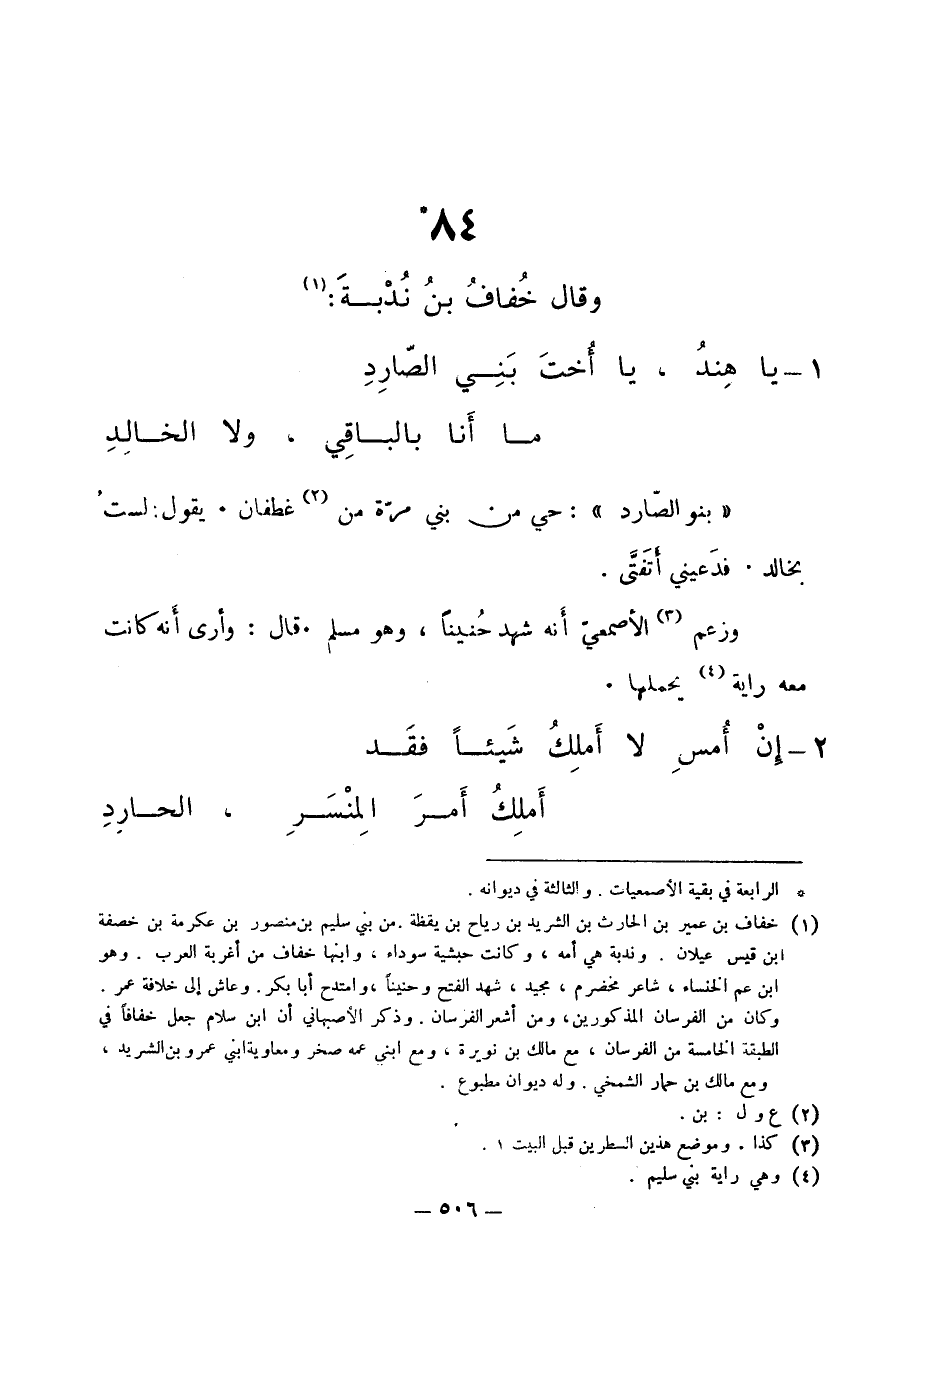 ٨٤*
وقال خُفافُ بنُ نُدْبـةَ:(١)
١ – يا هِندُ ، يا أُختَ بَنِـي الصّارِدِ
مـا أَنا بالبـاقِي ، ولا الخـالِدِ
« بنو الصّارد » : حي من بني مرّة من (٢) غطفان . يقول : لستُ
بخالد . فدَعيني أَتَفَتَّى .
وزعم (٣) الأصمعيّ أَنه شهد حُنيناً ، وهو مسلم . قال : وأرى أَنه كانت
معه راية (٤) يحملها .
٢ – إِنْ أُمسِ لا أَملِكُ شَيئـاً فقَـد
أَملِكُ أَمـرَ المِنْسَـرِ ، الحـارِدِ
* الرابعة في بقية الأصمعيات . والثالثة في ديوانه .
(١) خفاف بن عمير بن الحارث بن الشريد بن رياح بن يقظة . من بني سليم بن منصور بن عكرمة بن خصفة
ابن قيس عيلان . وندبة هي أمه ، وكانت حبشية سوداء ، وابنها خفاف من أغربة العرب . وهو
ابن عم الخنساء ، شاعر مخضرم ، مجيد ، شهد الفتح وحنيناً ، وامتدح أبا بكر . وعاش إلى خلافة عمر .
وكان من الفرسان المذكورين ، ومن أشعر الفرسان . وذكر الأصبهاني أن ابن سلام جعل خفافاً في
الطبقة الخامسة من الفرسان ، مع مالك بن نويرة ، ومع ابني عمه صخر ومعاوية ابني عمرو بن الشريد ،
ومع مالك بن حمار الشمخي . وله ديوان مطبوع .
(٢) ع و ل : بن .
(٣) كذا . وموضع هذين السطرين قبل البيت ١ .
(٤) وهي راية بني سليم .
– ٥٠٦ –